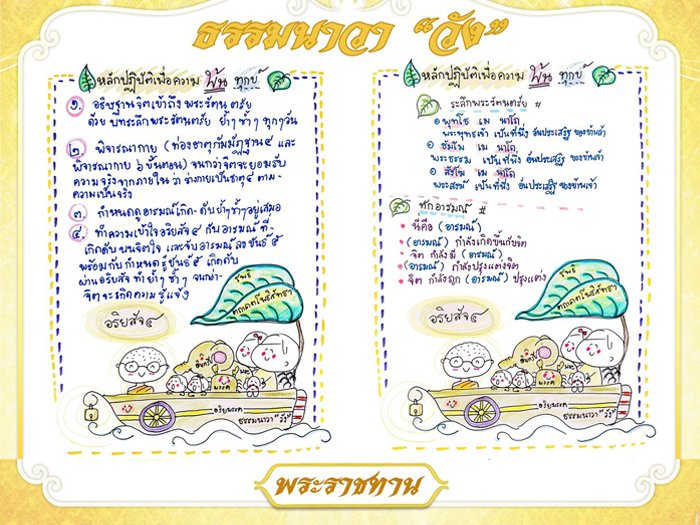 ธรรมนาวา “วัง”
หลักปฏิบัติเพื่อความ พ้น ทุกข์
๑. อธิษฐานจิตเข้าถึง พระรัตนตรัย
ด้วย บทระลึกพระรัตนตรัย ย้ำๆ ซ้ำๆ ทุกๆวัน
๒ พิจารณากาย (ท่องธาตุกัมมัฏฐาน๔ และ
พิจารณากาย ๖ ขั้นตอน) จนกว่าจิตจะยอมรับ
ความจริงจากภายในว่า ร่างกายเป็นธาตุ ๔ ตาม-
ความเป็นจริง
๓. กำหนดดูอารมณ์เกิด-ดับย้ำๆซ้ำๆอยู่เสมอ
๔. ทำความเข้าใจอริยสัจ ๔ กับอารมณ์ ที่-
เกิดดับ บนจิตใจ และจับอารมณ์ลงขันธ์ ๕
พร้อมกับกำหนดรู้ขันธ์ ๕ เกิดดับ
ผ่านอริยสัจ ทำย้ำๆ ซ้ำๆ จนกว่า-
จิตจะเกิดความรู้แจ้ง
อริยสัจ๔
โพธิ
ตถาคตโพธิสัทธา
มรรค
อริยมรรค
ธรรมนาวา "วัง"
หลักปฏิบัติเพื่อความ พ้น ทุกข์
ระลึกพระรัตนตรัย #
๏ พุทโธ เม นาโถ
พระพุทธเจ้า เป็นที่พึ่ง อันประเสริฐ ของข้าเจ้า
๏ ธัมโม เม นาโถ
พระธรรม เป็นที่พึ่ง อันประเสริฐ ของข้าเจ้า
๏ สังโฆ เม นาโถ
พระสงฆ์ เป็นที่พึ่ง อันประเสริฐ ของข้าเจ้า
ทักอารมณ์ #
• นี่คือ (อารมณ์)
• (อารมณ์) กำลังเกิดขึ้นกับจิต
• จิต กำลังมี (อารมณ์)
• (อารมณ์) กำลังปรุงแต่งจิต
• จิต กำลังถูก (อารมณ์) ปรุงแต่ง
อริยสัจ๔
โพธิ
ตถาคตโพธิสัทธา
มรรค
อริยมรรค
ธรรมนาวา "วัง"
พระราชทาน